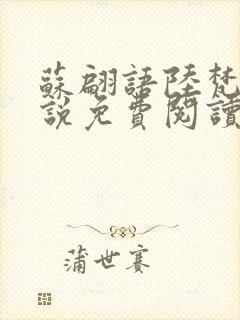 蘇翩語陸梵
說免費閱讀
蒲世賽